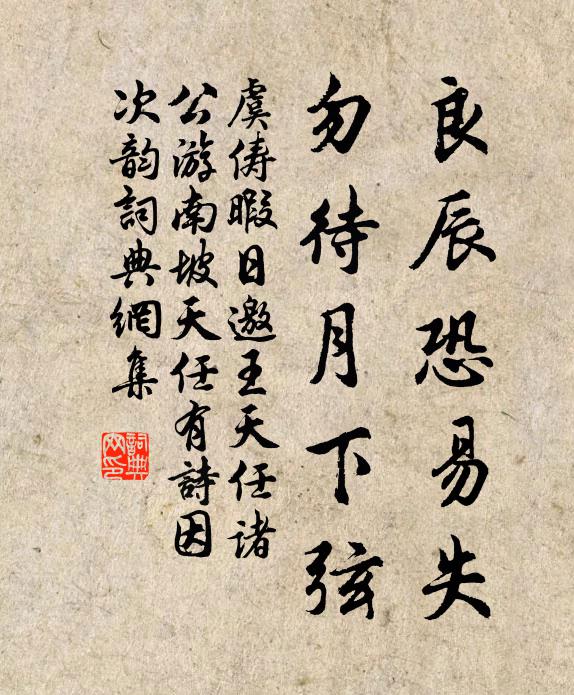 良辰恐易失
勿待月下弦
虞俦暇日邀王天任诸
公游南坡天任有詩因
次韵詞典網集
詞典
网印